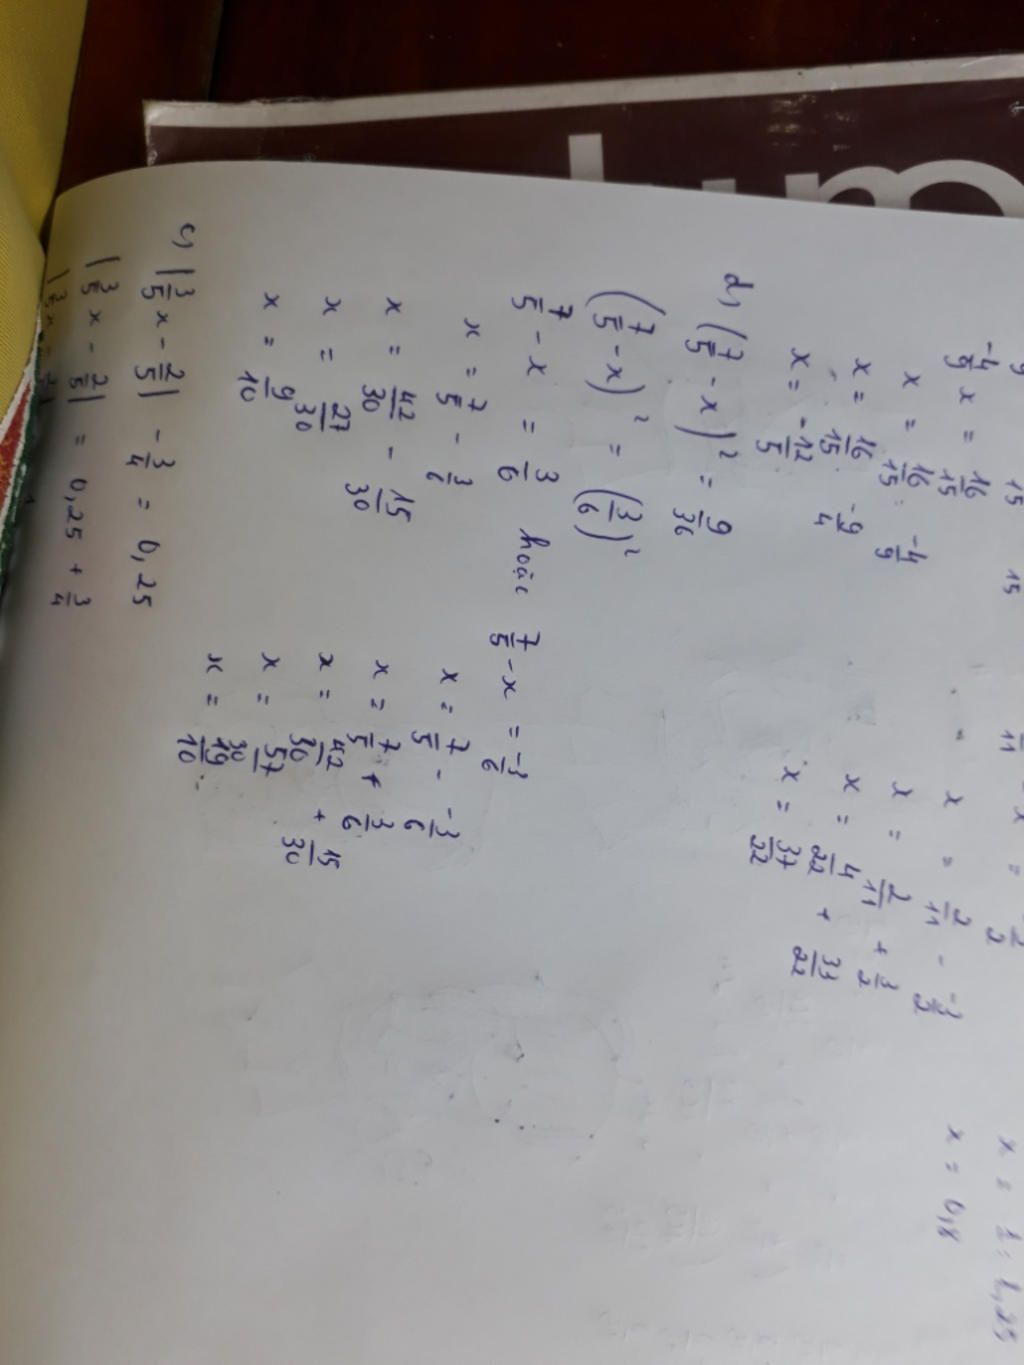 -4/9 x = 16/15
x = 16/15 -4/9
x = 16/15 -9/4
x = -12/5
x = 2/11 - -3/2
x = 2/11 + 3/2
x = 4/22 + 33/22
x = 37/22
x = 1 : 1,25
x = 0,8
d, (7/5 - x)² = 9/36
(7/5 - x)² = (3/6)²
7/5 - x = 3/6 hoặc 7/5 - x = -3/6
x = 7/5 - 3/6
x = 42/30 - 15/30
x = 27/30
x = 9/10
x = 7/5 - -3/6
x = 7/5 + 3/6
x = 42/30 + 15/30
x = 57/30
x = 19/10
e, |3/5 x - 2/5| - 3/4 = 0,25
|3/5 x - 2/5| = 0,25 + 3/4